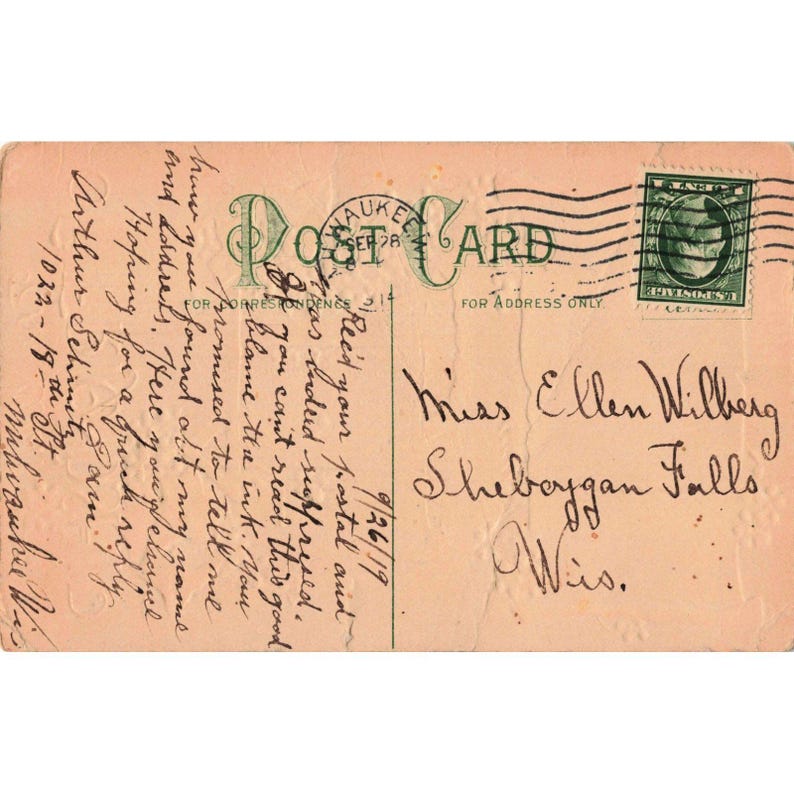 POST CARD
FOR CORRESPONDENCE
FOR ADDRESS ONLY
MILWAUKEE, WI
SEP 28
U.S. POSTAGE
1 CENT 1
9/26/19
Rec'd your postal and
was indeed surprised.
If you can't read this good
blame the ink. You
promised to tell me
how you found out my name
and address. Here your chance
Hoping for a quick reply
I am
Arthur Schmit
1022-18th St.
Milwaukee Wis
Miss Ellen Wilberg
Sheboygan Falls
Wis.